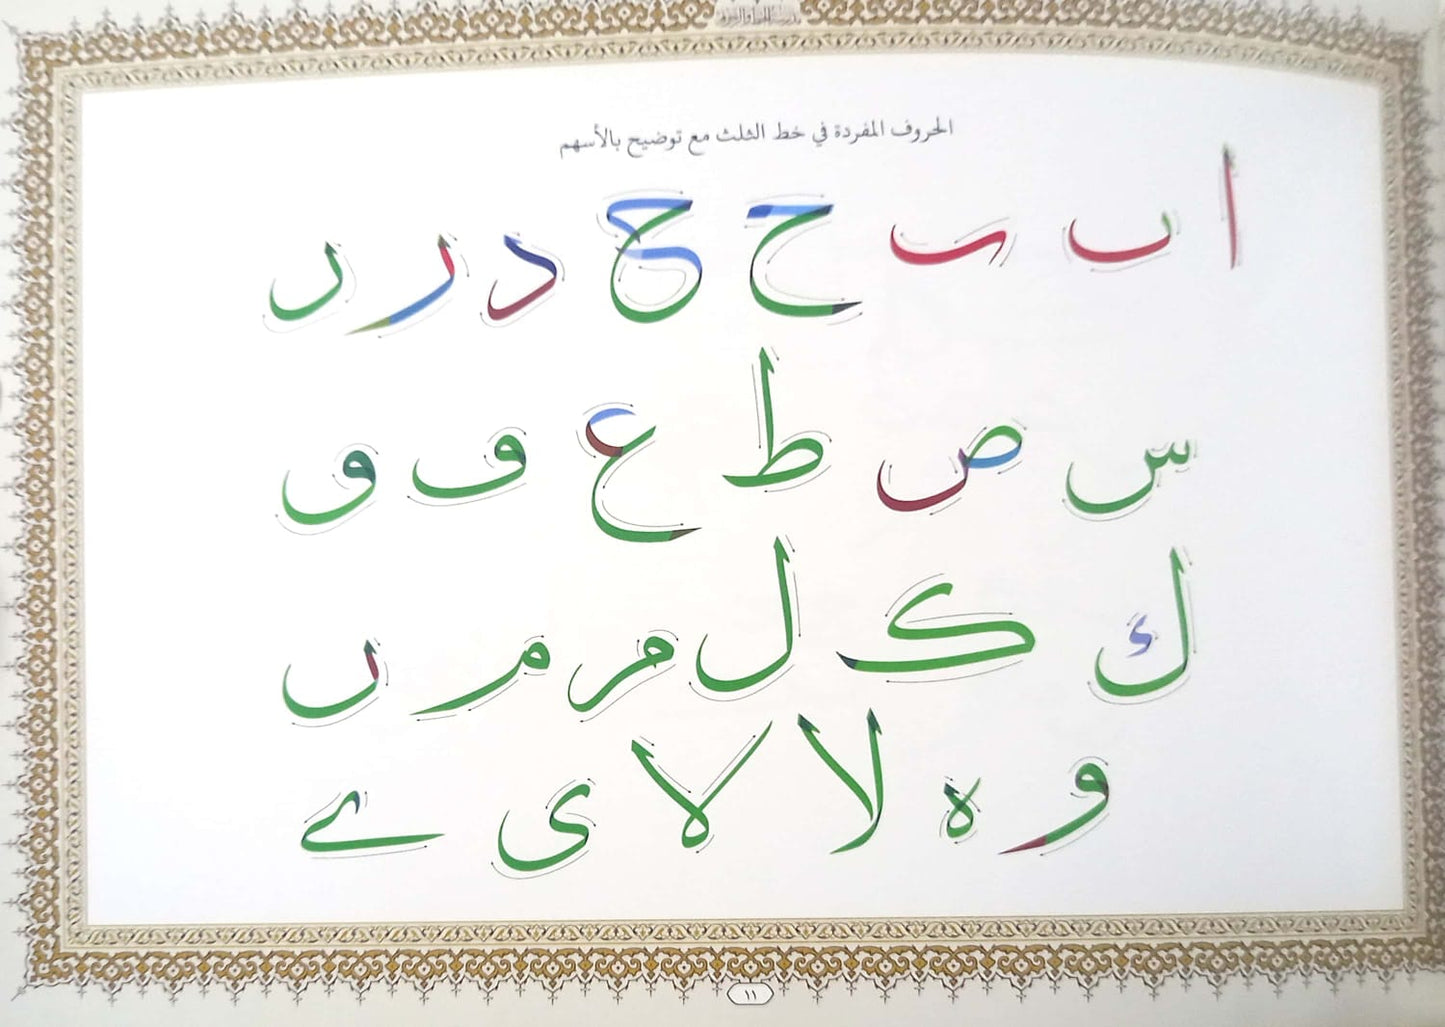 الحروف المفردة في خط الثلث مع توضيح بالأسهم
ا ں ں ح ح د ر ر
س ص ط ع ف و
ك ک ل م م ں
و ه لا لا ی ے
١١